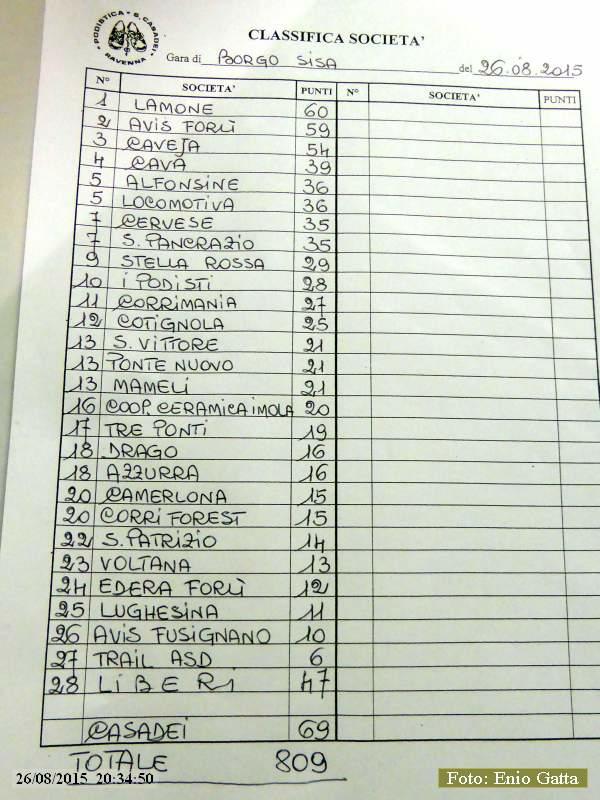 PODISTICA - S. CASADEI - RAVENNA
CLASSIFICA SOCIETA'
Gara di BORGO SISA del 26.08.2015
N° SOCIETA' PUNTI N° SOCIETA' PUNTI
1 LAMONE 60
2 AVIS FORLÌ 59
3 CAVEJA 54
4 CAVA 39
5 ALFONSINE 36
5 LOCOMOTIVA 36
7 CERVESE 35
7 S. PANCRAZIO 35
9 STELLA ROSSA 29
10 I PODISTI 28
11 CORRIMANIA 27
12 COTIGNOLA 25
13 S. VITTORE 21
13 PONTE NUOVO 21
13 MAMELI 21
16 COOP. CERAMICA IMOLA 20
17 TRE PONTI 19
18 DRAGO 16
18 AZZURRA 16
20 CAMERLONA 15
20 CORRI FOREST 15
22 S. PATRIZIO 14
23 VOLTANA 13
24 EDERA FORLÌ 12
25 LUGHESINA 11
26 AVIS FUSIGNANO 10
27 TRAIL ASD 6
28 LIBERI 47
CASADEI 69
TOTALE 809
26/08/2015 20:34:50
Foto: Enio Gatta